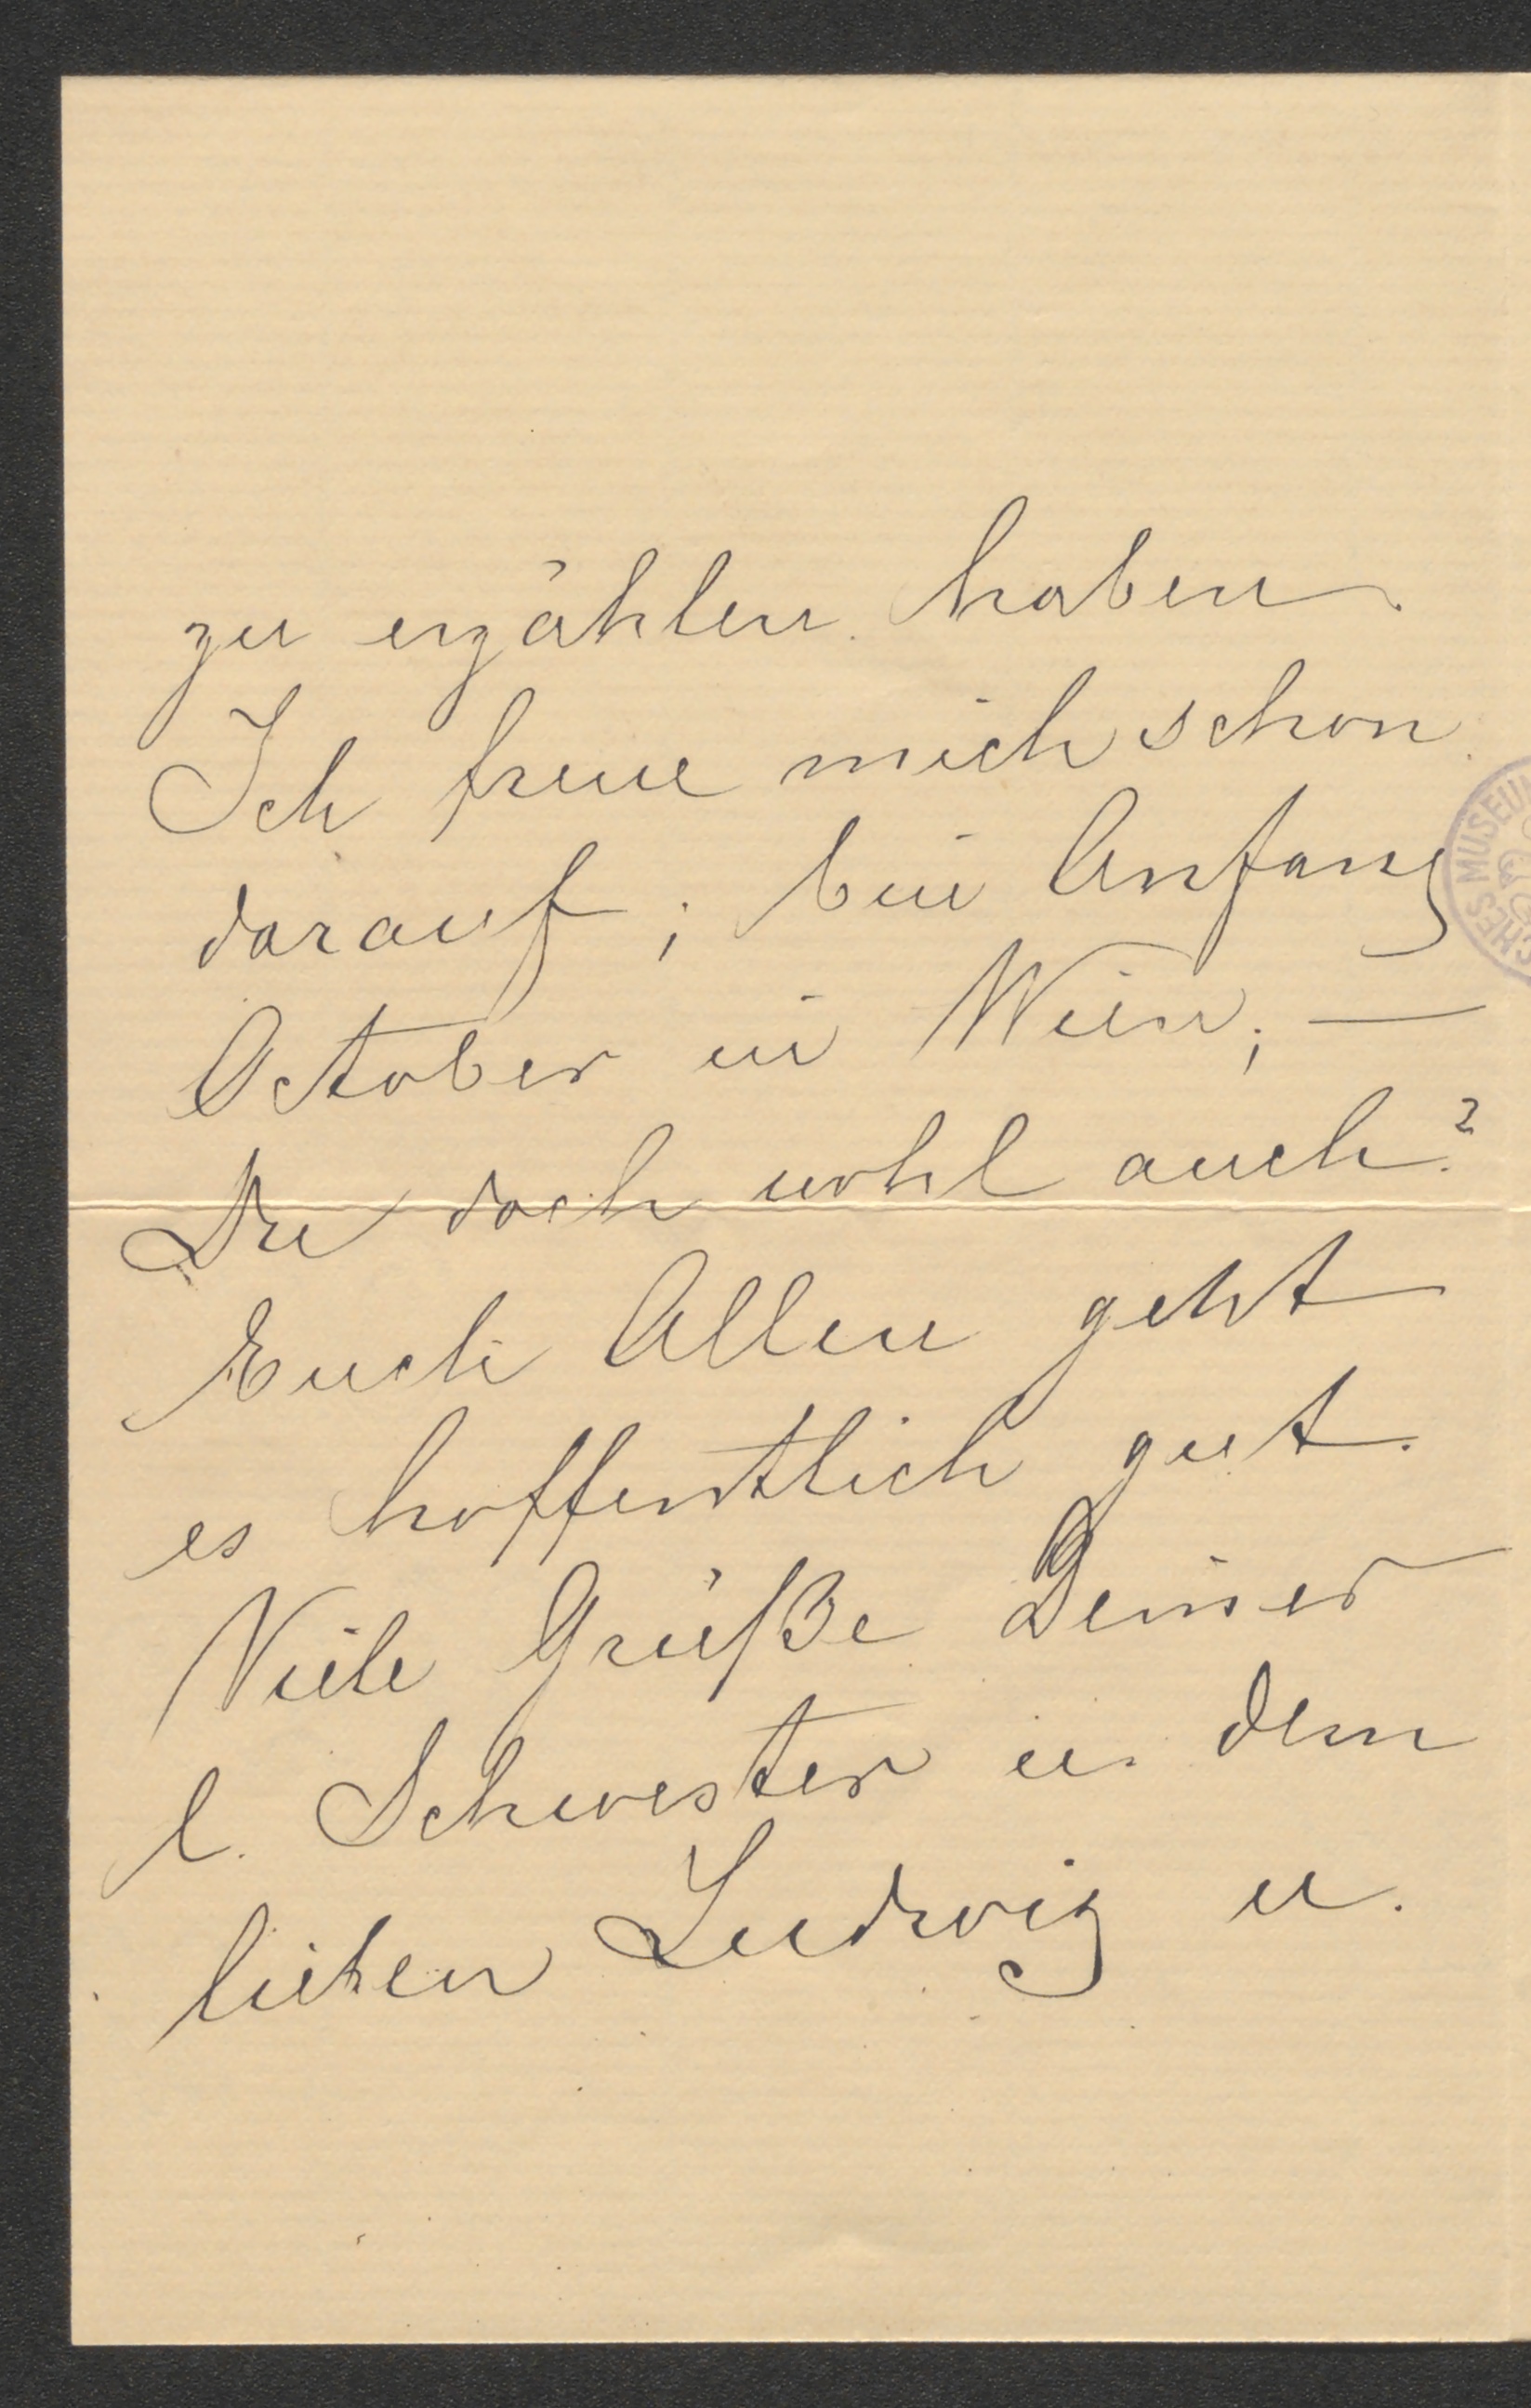 zu erzählen haben.
Ich freue mich schon
darauf; bin Anfang
October in Wien; —
Du doch wohl auch?
Euch Allen geht
es hoffentlich gut.
Viele Grüße Deiner
l. Schwester u. dem
lieben Ludwig u.
CHES MUSEUM